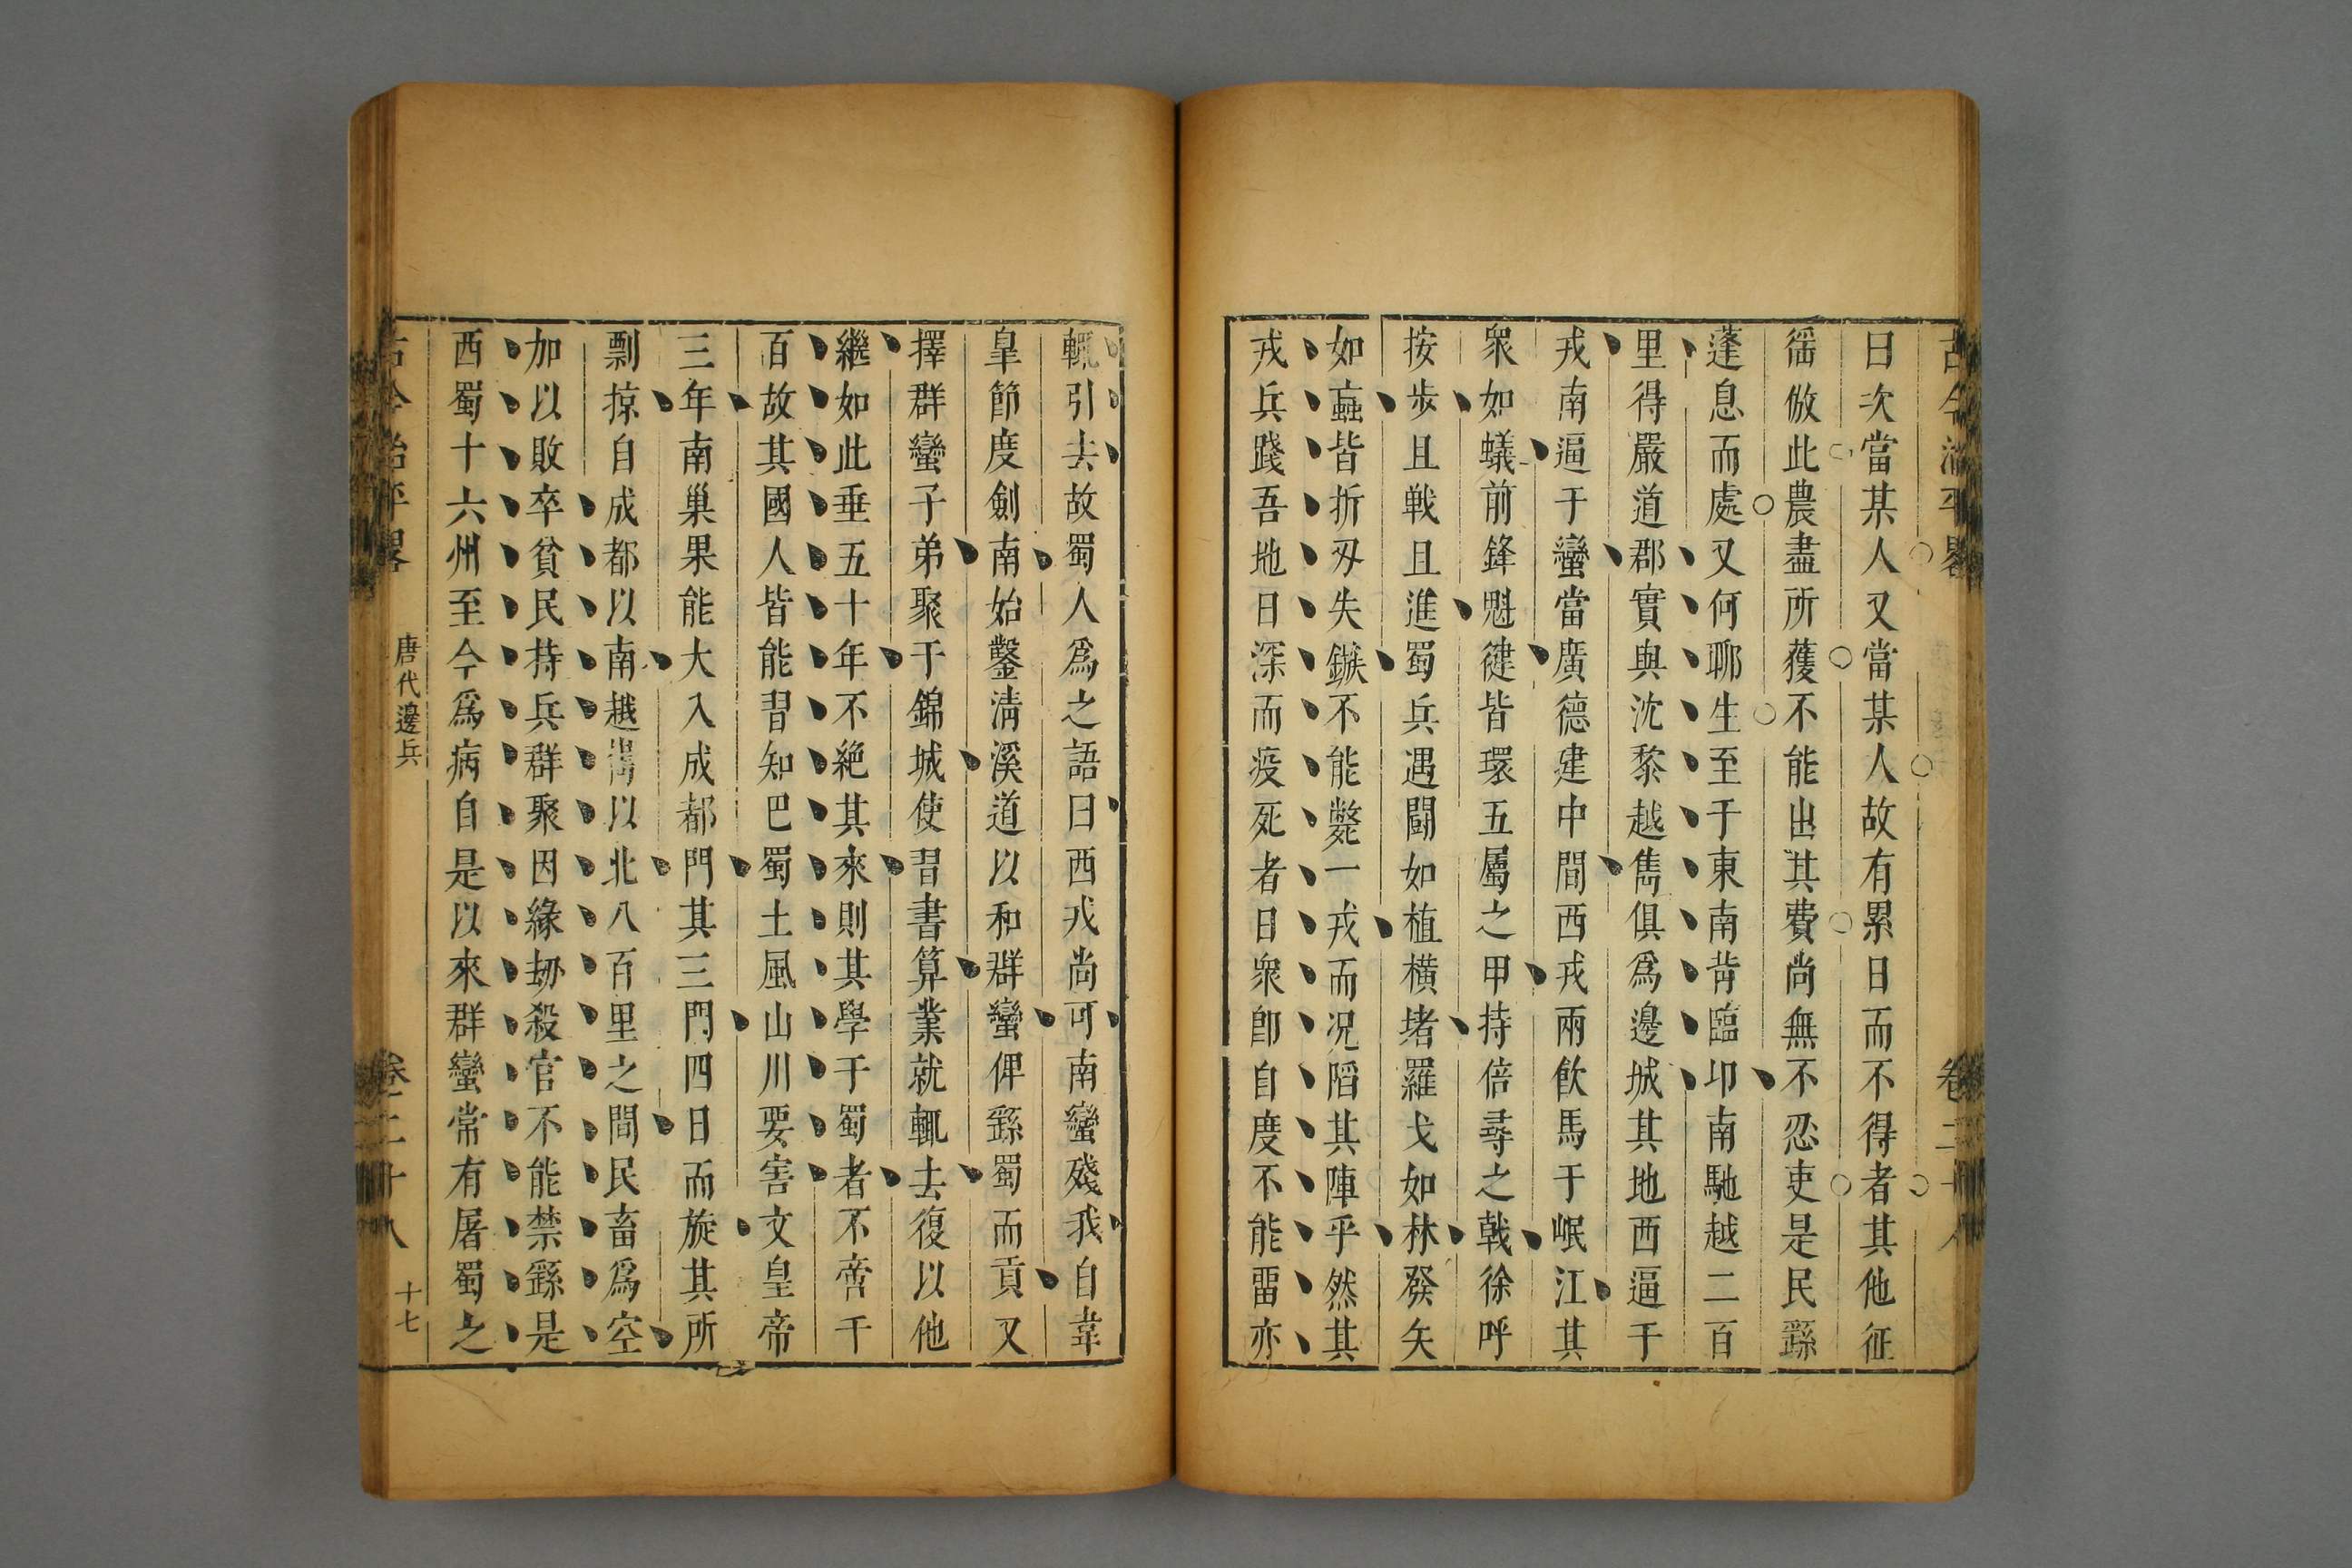 古今治平畧 卷二十八
日次當某人又當某人故有累日而不得者其他征
徭倣此農盡所獲不能出其費尚無不忍吏是民繇
蓬息而處又何聊生至于東南背臨卭南馳越二百
里得嚴道郡實與沈黎越雋俱爲邊城其地西逼于
戎南逼于蠻當廣德建中間西戎兩飲馬于岷江其
衆如蟻前鋒魁健皆環五屬之甲持倍尋之戟徐呼
按步且戰且進蜀兵遇鬪如植橫堵羅戈如林發矢
如蝱皆折刄失鏃不能斃一戎而况陷其陣乎然其
戎兵踐吾地日深而疫死者日衆卽自度不能畱亦
輒引去故蜀人爲之語曰西戎尚可南蠻殘我自韋
臯節度劍南始鑿淸溪道以和群蠻俾繇蜀而貢又
擇群蠻子弟聚于錦城使習書算業就輒去復以他
繼如此垂五十年不絶其來則其學于蜀者不啻千
百故其國人皆能習知巴蜀土風山川要害文皇帝
三年南巢果能大入成都門其三門四日而旋其所
剽掠自成都以南越巂以北八百里之間民畜爲空
加以敗卒貧民持兵群聚因緣刼殺官不能禁繇是
西蜀十六州至今爲病自是以來群蠻常有屠蜀之
古今治平畧 唐代邊兵 卷二十八 十七